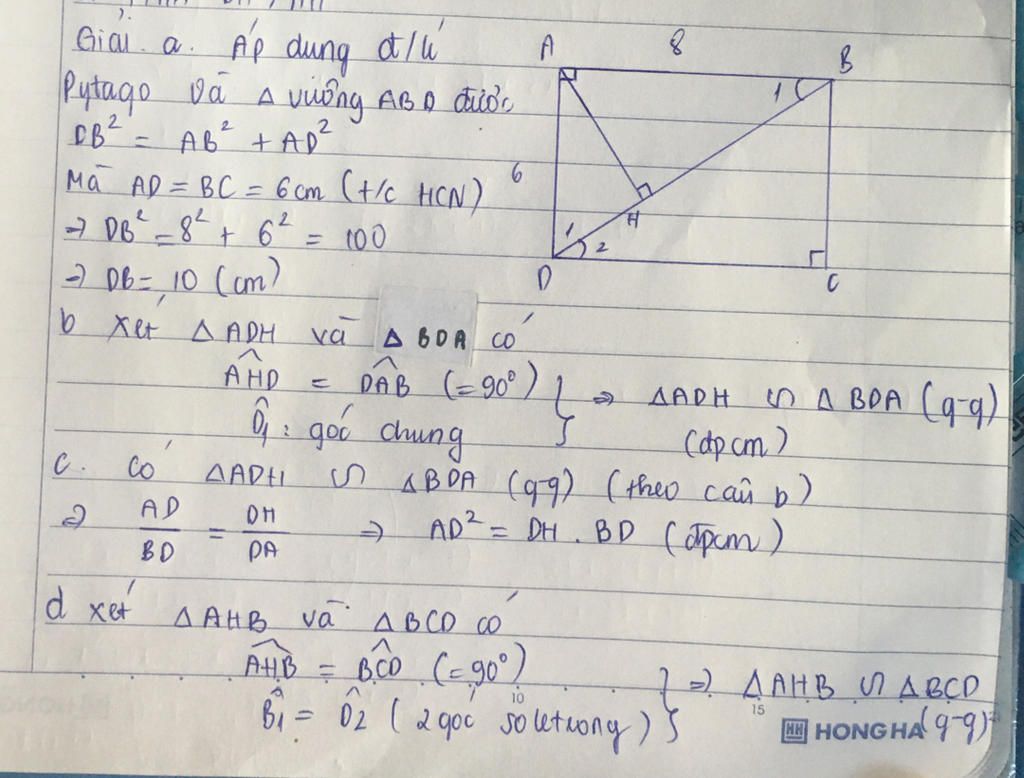 Giải. a. Áp dụng đ/lí
Pytago vã △ vuông ABD được
DB² = AB² + AD²
Mã AD = BC = 6cm (t/c HCN)
⇒ DB² = 8² + 6² = 100
⇒ DB = 10 (cm)
A 8 B
1
6
H
1 2
D C
b xét △ ADH vã △ BDA có
AHD = DAB (= 90°) } ⇒ △ADH ∽ △ BDA (g-g)
D̂₁ : góc chung (dpcm)
c. Có △ADH ∽ △BDA (g-g) (theo câu b)
⇒ AD/BD = DH/DA ⇒ AD² = DH . BD (đpcm)
d xét △AHB vã △BCD có
AHB = BCD (= 90°) } ⇒ △AHB ∽ △BCD
B̂₁ = D̂₂ (2 góc soletrong) (g-g)
10 15
HH HONG HA